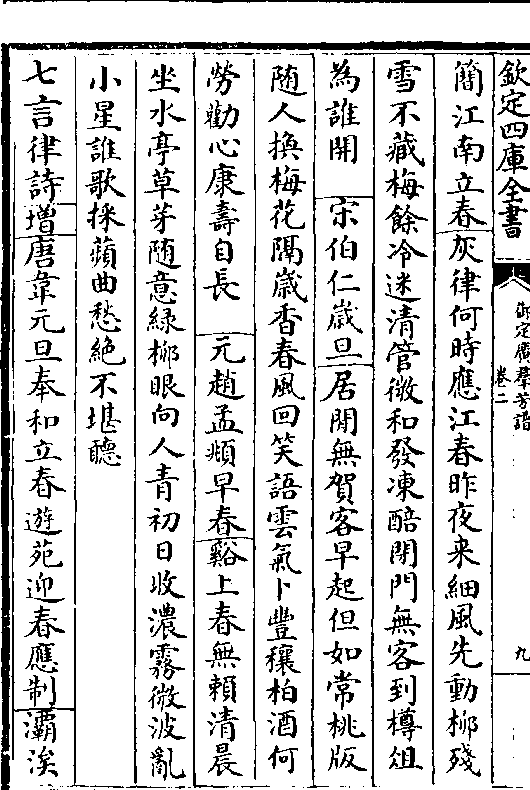 欽定四庫全書
御定廣群芳譜
卷二
九
簡江南立春灰律何時應江春昨夜来細風先動桞殘
雪不藏梅餘冷迷清管微和發凍醅閉門無客到樽俎
為誰開 宋伯仁嵗旦居閒無賀客早起但如常桃版
随人換梅花隔嵗香春風回笑語雲氣卜豐穰柏酒何
勞勸心康壽自長 元趙孟頫早春谿上春無頼清晨
坐水亭草芽随意緑桞眼向人青初日收濃霧微波亂
小星誰歌採蘋曲愁絶不堪聽
七言律詩増唐韋元旦奉和立春遊苑迎春應制灞涘